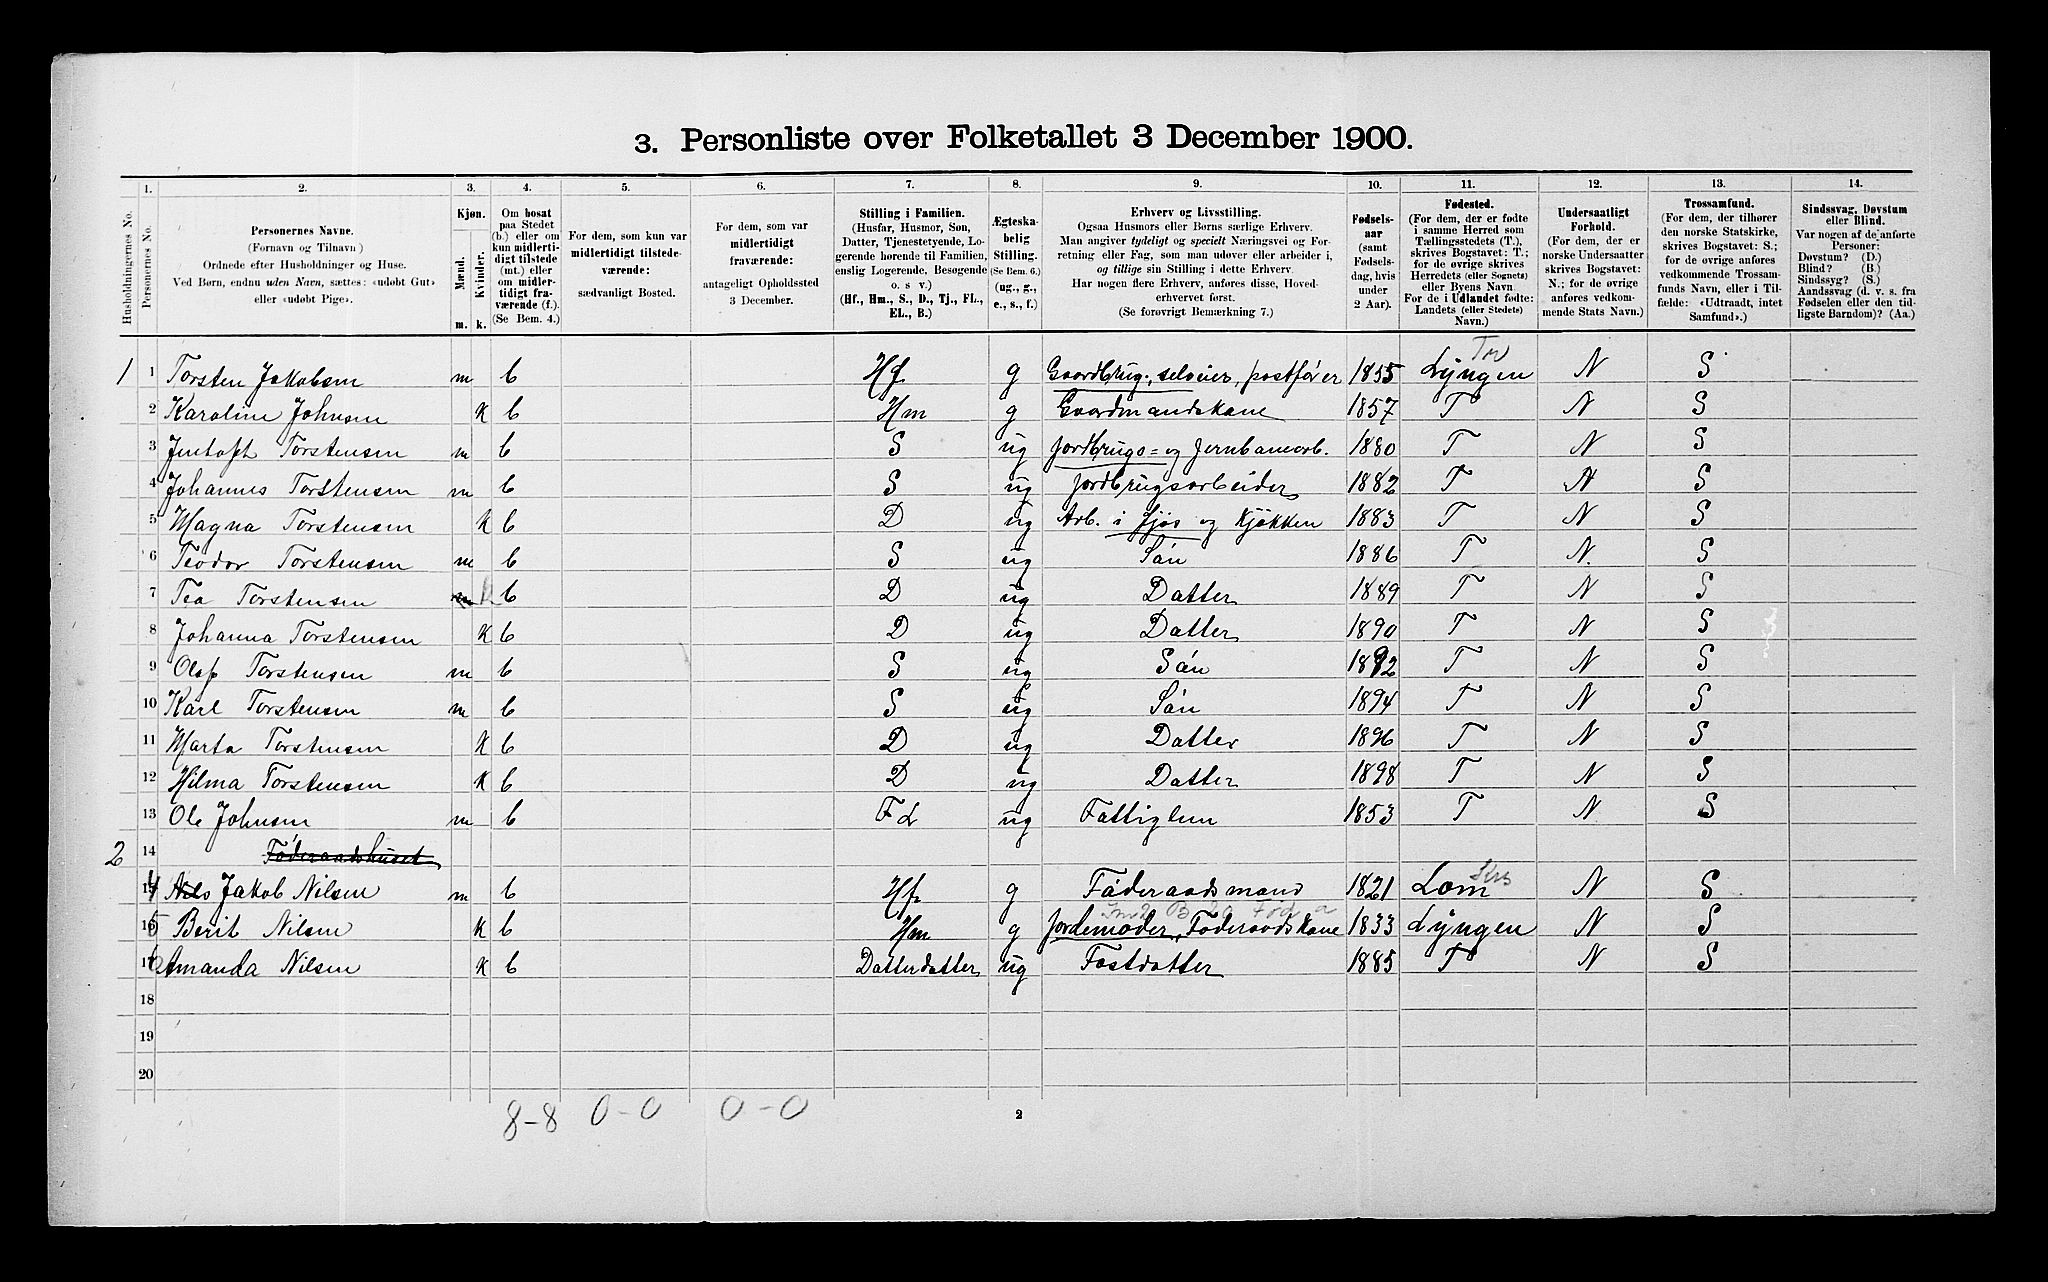 3. Personliste over Folketallet 3 December 1900.
Husholdningernes No.
1. Personernes No.
2. Personernes Navne. (Fornavn og Tilnavn) Ordnede efter Husholdninger og Huse. Ved Børn, endnu uden Navn, sættes: «udøbt Gut» eller «udøbt Pige».
3. Kjøn. Mænd. m. Kvinder. k.
4. Om bosat paa Stedet (b.) eller om kun midlertidigt tilstede (mt.) eller om midlertidigt fraværende (f.). (Se Bem. 4.)
5. For dem, som kun var midlertidigt tilstedeværende: sædvanligt Bosted.
6. For dem, som var midlertidigt fraværende: antageligt Opholdssted 3 December.
7. Stilling i Familien. (Husfar, Husmor, Søn, Datter, Tjenestetyende, Logerende hørende til Familien, enslig Logerende, Besøgende o. s. v.) (Hf., Hm., S., D., Tj., FL., EL., B.)
8. Ægteskabelig Stilling. (Se Bem. 6.) (ug., g., e., s., f.)
9. Erhverv og Livsstilling. Ogsaa Husmors eller Børns særlige Erhverv. Man angiver tydeligt og specielt Næringsvei og Forretning eller Fag, som man udøver eller arbeider i, og tillige sin Stilling i dette Erhverv. Har nogen flere Erhverv, anføres disse, Hovederhvervet først. (Se forøvrigt Bemærkning 7.)
10. Fødselsaar (samt Fødselsdag, hvis under 2 Aar).
11. Fødested. (For dem, der er fødte i samme Herred som Tællingsstedets (T.), skrives Bogstavet: T.; for de øvrige skrives Herredets (eller Sognets) eller Byens Navn. For de i Udlandet fødte: Landets (eller Stedets) Navn.)
12. Undersaatligt Forhold. (For dem, der er norske Undersaatter skrives Bogstavet: N.; for de øvrige anføres vedkommende Stats Navn.)
13. Trossamfund. (For dem, der tilhører den norske Statskirke, skrives Bogstavet: S.; for de øvrige anføres vedkommende Trossamfunds Navn, eller i Tilfælde: «Udtraadt, intet Samfund».)
14. Sindssvag, Døvstum eller Blind. Var nogen af de anførte Personer: Døvstum? (D.) Blind? (B.) Sindssyg? (S.) Aandssvag (d. v. s. fra Fødselen eller den tidligste Barndom)? (Aa.)
1 1 Torsten Jakobsen m b Hf g Gaardbrug., selveier, postfører 1855 Lyngen Tr N S
2 Karoline Johnsen K b Hm g Gaardmandskone 1857 T N S
3 Jentoft Torstensen m b S ug Jordbrugs= og Jernbanearb. 1880 T N S
4 Johannes Torstensen m b S ug Jordbrugsarbeider 1882 T N S
5 Magna Torstensen K b D ug Arb. i fjøs og Kjøkken 1883 T N S
6 Teodor Torstensen m b S ug Søn 1886 T N. S
7 Tea Torstensen m k b D ug Datter 1889 T N S
8 Johanna Torstensen K b D ug Datter 1890 T N S
9 Olaf Torstensen m b S ug Søn 1892 T N S
10 Karl Torstensen m b S ug Søn 1894 T N S
11 Marta Torstensen K b D ug Datter 1896 T N S
12 Hilma Torstensen K b D ug Datter 1898 T N S
13 Ole Johnsen m b FL ug Fattiglem 1853 T N S
2 14 Føderaadshuset
15 4 Nils Jakob Nilsen m b Hf g Føderaadsmand 1821 Lom N S
16 5 Berit Nilsen K b Hm g Jordemoder, Føderaadskone 1833 Lyngen N S
17 6 Amanda Nilsen K b Datterdatter ug Fostdatter 1885 T N S
18
19
20
8-8 0-0 0-0
2